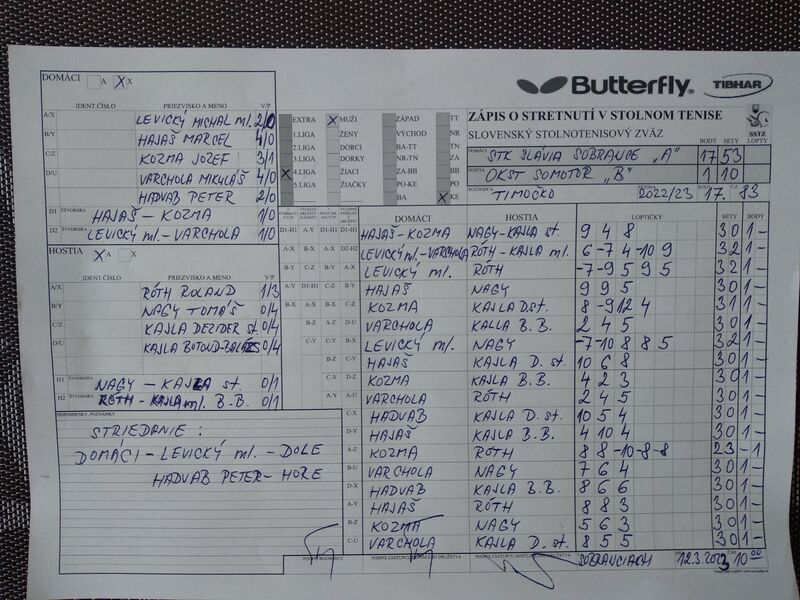 DOMÁCI A X X
Butterfly
TIBHAR
IDENT.ČÍSLO PRIEZVISKO A MENO V/P
A/X LEVICKÝ MICHAL ml. 2/0
B/Y HAJAŠ MARCEL 4/0
C/Z KOZMA JOZEF 3/1
D/U VARCHOLA MIKULÁŠ 4/0
HADVAB PETER 2/0
D1 ŠTVORHRA HAJAŠ - KOZMA 1/0
D2 ŠTVORHRA LEVICKÝ ml. - VARCHOLA 1/0
HOSTIA X A X
IDENT.ČÍSLO PRIEZVISKO A MENO V/P
A/X RÓTH ROLAND 1/3
B/Y NAGY TOMÁŠ 0/4
C/Z KAJLA DEZIDER st. 0/4
D/U KAJLA BOTOND-BALÁZS 0/4
H1 ŠTVORHRA NAGY - KAJLA st. 0/1
H2 ŠTVORHRA RÓTH - KAJLA ml. B.B. 0/1
PRIPOMIENKY, POZNÁMKY
STRIEDANIE :
DOMÁCI - LEVICKÝ ml. - DOLE
HADVAB PETER - HORE
EXTRA X MUŽI ZÁPAD TT
1.LIGA ŽENY VÝCHOD NR
2.LIGA DORCI BA-TT TN
3.LIGA DORKY NR-TN ZA
X 4.LIGA ŽIACI ZA-BB BB
5.LIGA ŽIAČKY PO-KE PO
BA X KE
ZÁPIS O STRETNUTÍ V STOLNOM TENISE
SLOVENSKÝ STOLNOTENISOVÝ ZVÄZ
SSTZ
BODY SETY LOPTY
DOMÁCI STK SLAVIA SOBRANCE "A" 17 53
HOSTIA OKST SOMOTOR "B" 1 10
ROZHODCA TIMOČKO 2022/23 KOLO 17. Č.Z. 83
DOMÁCI HOSTIA LOPTIČKY SETY BODY
D1-H1 A-Y D1-H1 D1-H1 HAJAŠ-KOZMA NAGY-KAJLA st. 9 4 8 3 0 1 -
A-X B-X A-X D2-H2 LEVICKÝ ml.-VARCHOLA RÓTH-KAJLA ml. 6 -7 4 -10 9 3 2 1 -
B-Y C-Z B-Y A-X LEVICKÝ ml. RÓTH -7 -9 5 9 5 3 2 1 -
A-Y D1-H1 C-Z B-Y HAJAŠ NAGY 9 9 5 3 0 1 -
B-X A-X B-X C-Z KOZMA KAJLA D.st. 8 -9 12 4 3 1 1 -
B-Z A-Z D-U VARCHOLA KALLA B.B. 2 4 5 3 0 1 -
C-Y B-Z A-Y LEVICKÝ ml. NAGY -7 -10 8 8 5 3 2 1 -
B-Y C-Y B-Z HAJAŠ KAJLA D. st. 10 6 8 3 0 1 -
C-X D-Z KOZMA KAJLA B.B. 4 2 3 3 0 1 -
A-Y A-U VARCHOLA RÓTH 2 4 5 3 0 1 -
C-X HADVAB KAJLA D. st. 10 5 4 3 0 1 -
D-Y HAJAŠ KAJLA B.B. 4 10 4 3 0 1 -
A-Z KOZMA RÓTH 8 8 -10 -8 -8 2 3 - 1
B-U VARCHOLA NAGY 7 6 4 3 0 1 -
D-X HADVAB KAJLA B.B. 8 6 6 3 0 1 -
A-Y HAJAŠ RÓTH 8 8 3 3 0 1 -
B-Z KOZMA NAGY 5 6 3 3 0 1 -
C-U VARCHOLA KAJLA D. st. 8 5 5 3 0 1 -
PODPIS ROZHODCU SOBRANCIACH 12.3.2023 ČAS 10 00